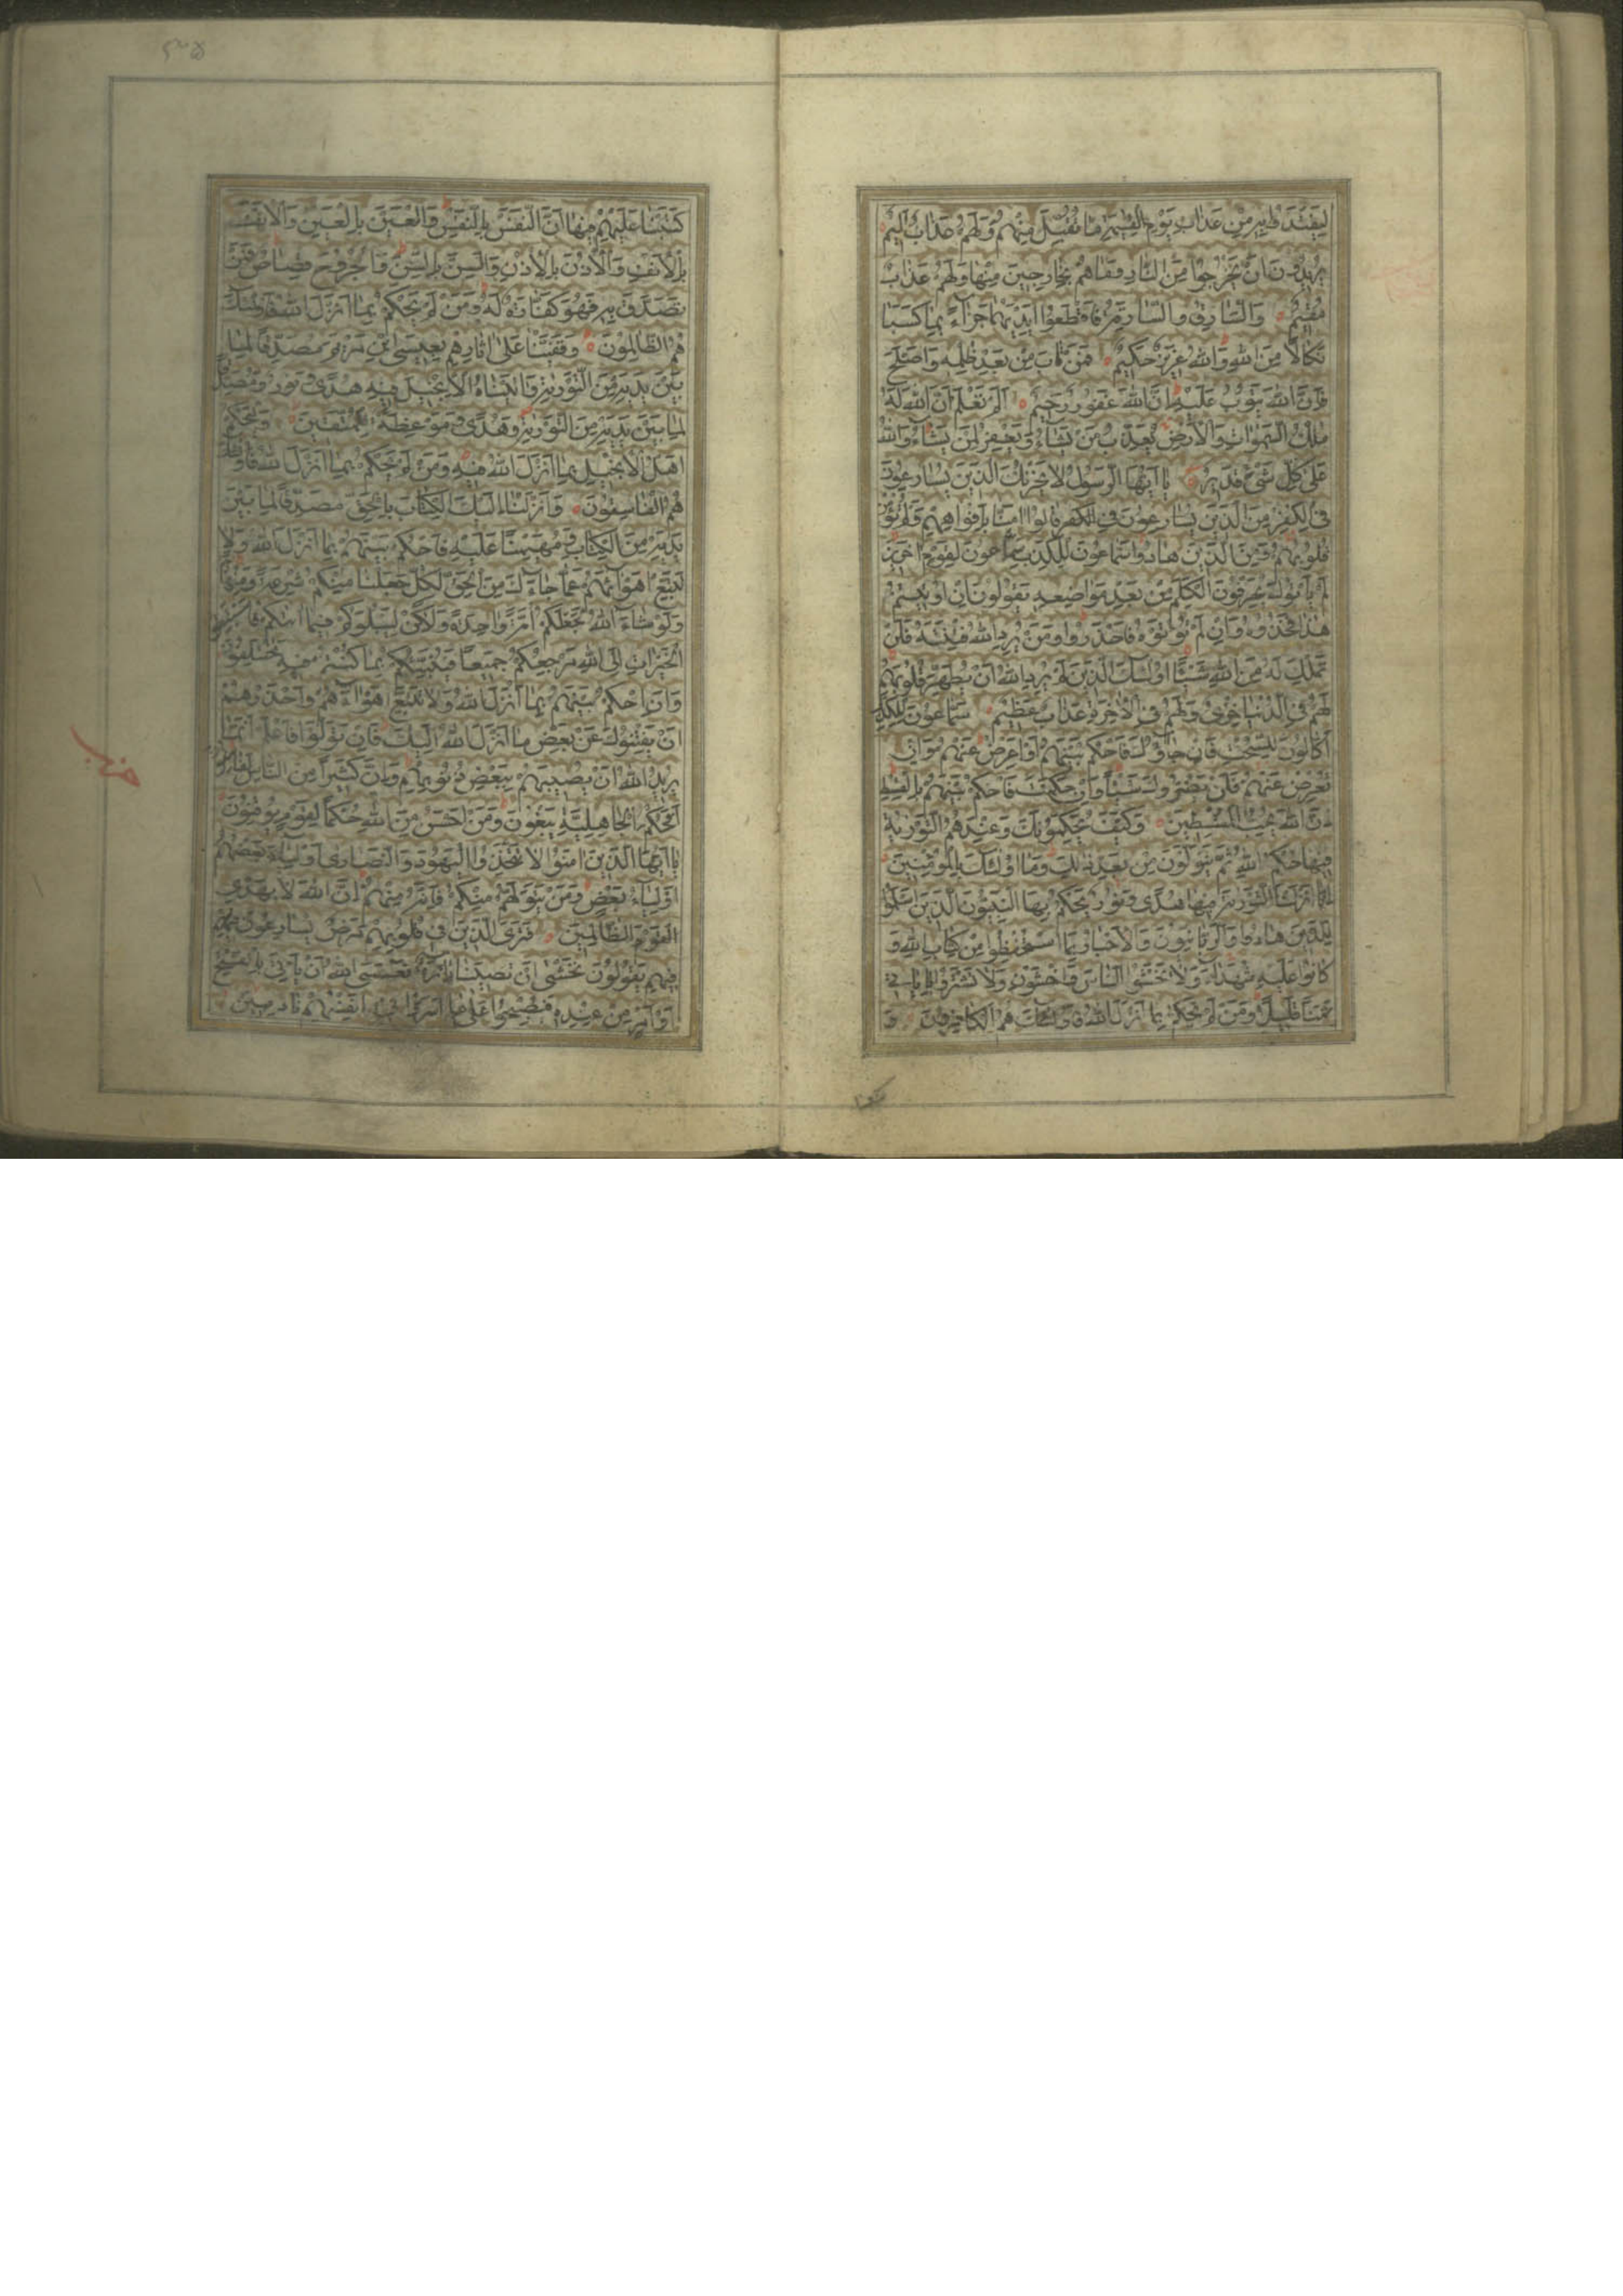 لِيَفْتَدُوا بِهِ مِنْ عَذَابِ يَوْمِ الْقِيٰمَةِ مَا تُقُبِّلَ مِنْهُمْ وَلَهُمْ عَذَابٌ اَلِيمٌ
يُرِيدُونَ اَنْ يَخْرُجُوا مِنَ النَّارِ وَمَا هُمْ بِخَارِجِينَ مِنْهَا وَلَهُمْ عَذَابٌ
مُقِيمٌ وَالسَّارِقُ وَالسَّارِقَةُ فَاقْطَعُوا اَيْدِيَهُمَا جَزَاءً بِمَا كَسَبَا
نَكَالًا مِنَ اللهِ وَاللهُ عَزِيزٌ حَكِيمٌ فَمَنْ تَابَ مِنْ بَعْدِ ظُلْمِهِ وَاَصْلَحَ
فَاِنَّ اللهَ يَتُوبُ عَلَيْهِ اِنَّ اللهَ غَفُورٌ رَحِيمٌ اَلَمْ تَعْلَمْ اَنَّ اللهَ لَهُ
مُلْكُ السَّمٰوَاتِ وَالْاَرْضِ يُعَذِّبُ مَنْ يَشَاءُ وَيَغْفِرُ لِمَنْ يَشَاءُ وَاللهُ
عَلٰى كُلِّ شَيْءٍ قَدِيرٌ يَا اَيُّهَا الرَّسُولُ لَا يَحْزُنْكَ الَّذِينَ يُسَارِعُونَ
فِي الْكُفْرِ مِنَ الَّذِينَ قَالُوا اٰمَنَّا بِاَفْوَاهِهِمْ وَلَمْ تُؤْمِنْ
قُلُوبُهُمْ وَمِنَ الَّذِينَ هَادُوا سَمَّاعُونَ لِلْكَذِبِ سَمَّاعُونَ لِقَوْمٍ اٰخَرِينَ
لَمْ يَأْتُوكَ يُحَرِّفُونَ الْكَلِمَ مِنْ بَعْدِ مَوَاضِعِهِ يَقُولُونَ اِنْ اُوتِيتُمْ
هٰذَا فَخُذُوهُ وَاِنْ لَمْ تُؤْتَوْهُ فَاحْذَرُوا وَمَنْ يُرِدِ اللهُ فِتْنَتَهُ فَلَنْ
تَمْلِكَ لَهُ مِنَ اللهِ شَيْئًا اُولٰئِكَ الَّذِينَ لَمْ يُرِدِ اللهُ اَنْ يُطَهِّرَ قُلُوبَهُمْ
لَهُمْ فِي الدُّنْيَا خِزْيٌ وَلَهُمْ فِي الْاٰخِرَةِ عَذَابٌ عَظِيمٌ سَمَّاعُونَ لِلْكَذِبِ
اَكَّالُونَ لِلسُّحْتِ فَاِنْ جَاؤُكَ فَاحْكُمْ بَيْنَهُمْ اَوْ اَعْرِضْ عَنْهُمْ وَاِنْ
تُعْرِضْ عَنْهُمْ فَلَنْ يَضُرُّوكَ شَيْئًا وَاِنْ حَكَمْتَ فَاحْكُمْ بَيْنَهُمْ بِالْقِسْطِ
اِنَّ اللهَ يُحِبُّ الْمُقْسِطِينَ وَكَيْفَ يُحَكِّمُونَكَ وَعِنْدَهُمُ التَّوْرٰيةُ
فِيهَا حُكْمُ اللهِ ثُمَّ يَتَوَلَّوْنَ مِنْ بَعْدِ ذٰلِكَ وَمَا اُولٰئِكَ بِالْمُؤْمِنِينَ
اِنَّا اَنْزَلْنَا التَّوْرٰيةَ فِيهَا هُدًى وَنُورٌ يَحْكُمُ بِهَا النَّبِيُّونَ الَّذِينَ اَسْلَمُوا
لِلَّذِينَ هَادُوا وَالرَّبَّانِيُّونَ وَالْاَحْبَارُ بِمَا اسْتُحْفِظُوا مِنْ كِتَابِ اللهِ وَ
كَانُوا عَلَيْهِ شُهَدَاءَ فَلَا تَخْشَوُا النَّاسَ وَاخْشَوْنِ وَلَا تَشْتَرُوا بِاٰيَاتِي
ثَمَنًا قَلِيلًا وَمَنْ لَمْ يَحْكُمْ بِمَا اَنْزَلَ اللهُ فَاُولٰئِكَ هُمُ الْكَافِرُونَ وَ
كَتَبْنَا عَلَيْهِمْ فِيهَا اَنَّ النَّفْسَ بِالنَّفْسِ وَالْعَيْنَ بِالْعَيْنِ وَالْاَنْفَ
بِالْاَنْفِ وَالْاُذُنَ بِالْاُذُنِ وَالسِّنَّ بِالسِّنِّ وَالْجُرُوحَ قِصَاصٌ فَمَنْ
تَصَدَّقَ بِهِ فَهُوَ كَفَّارَةٌ لَهُ وَمَنْ لَمْ يَحْكُمْ بِمَا اَنْزَلَ اللهُ فَاُولٰئِكَ
هُمُ الظَّالِمُونَ وَقَفَّيْنَا عَلٰى اٰثَارِهِمْ بِعِيسَى ابْنِ مَرْيَمَ مُصَدِّقًا لِمَا
بَيْنَ يَدَيْهِ مِنَ التَّوْرٰيةِ وَاٰتَيْنَاهُ الْاِنْجِيلَ فِيهِ هُدًى وَنُورٌ وَمُصَدِّقًا
لِمَا بَيْنَ يَدَيْهِ مِنَ التَّوْرٰيةِ وَهُدًى وَمَوْعِظَةً لِلْمُتَّقِينَ وَلْيَحْكُمْ
اَهْلُ الْاِنْجِيلِ بِمَا اَنْزَلَ اللهُ فِيهِ وَمَنْ لَمْ يَحْكُمْ بِمَا اَنْزَلَ اللهُ فَاُولٰئِكَ
هُمُ الْفَاسِقُونَ وَاَنْزَلْنَا اِلَيْكَ الْكِتَابَ بِالْحَقِّ مُصَدِّقًا لِمَا بَيْنَ
يَدَيْهِ مِنَ الْكِتَابِ وَمُهَيْمِنًا عَلَيْهِ فَاحْكُمْ بَيْنَهُمْ بِمَا اَنْزَلَ اللهُ وَلَا
تَتَّبِعْ اَهْوَاءَهُمْ عَمَّا جَاءَكَ مِنَ الْحَقِّ لِكُلٍّ جَعَلْنَا مِنْكُمْ شِرْعَةً وَمِنْهَاجًا
وَلَوْ شَاءَ اللهُ لَجَعَلَكُمْ اُمَّةً وَاحِدَةً وَلٰكِنْ لِيَبْلُوَكُمْ فِيمَا اٰتٰيكُمْ فَاسْتَبِقُوا
الْخَيْرَاتِ اِلَى اللهِ مَرْجِعُكُمْ جَمِيعًا فَيُنَبِّئُكُمْ بِمَا كُنْتُمْ فِيهِ تَخْتَلِفُونَ
وَاَنِ احْكُمْ بَيْنَهُمْ بِمَا اَنْزَلَ اللهُ وَلَا تَتَّبِعْ اَهْوَاءَهُمْ وَاحْذَرْهُمْ
اَنْ يَفْتِنُوكَ عَنْ بَعْضِ مَا اَنْزَلَ اللهُ اِلَيْكَ فَاِنْ تَوَلَّوْا فَاعْلَمْ اَنَّمَا
يُرِيدُ اللهُ اَنْ يُصِيبَهُمْ بِبَعْضِ ذُنُوبِهِمْ وَاِنَّ كَثِيرًا مِنَ النَّاسِ لَفَاسِقُونَ
اَفَحُكْمَ الْجَاهِلِيَّةِ يَبْغُونَ وَمَنْ اَحْسَنُ مِنَ اللهِ حُكْمًا لِقَوْمٍ يُوقِنُونَ
يَا اَيُّهَا الَّذِينَ اٰمَنُوا لَا تَتَّخِذُوا الْيَهُودَ وَالنَّصَارٰى اَوْلِيَاءَ بَعْضُهُمْ
اَوْلِيَاءُ بَعْضٍ وَمَنْ يَتَوَلَّهُمْ مِنْكُمْ فَاِنَّهُ مِنْهُمْ اِنَّ اللهَ لَا يَهْدِي
الْقَوْمَ الظَّالِمِينَ فَتَرَى الَّذِينَ فِي قُلُوبِهِمْ مَرَضٌ يُسَارِعُونَ
فِيهِمْ يَقُولُونَ نَخْشٰى اَنْ تُصِيبَنَا دَائِرَةٌ فَعَسَى اللهُ اَنْ يَأْتِيَ بِالْفَتْحِ
اَوْ اَمْرٍ مِنْ عِنْدِهِ فَيُصْبِحُوا عَلٰى مَا اَسَرُّوا فِي اَنْفُسِهِمْ نَادِمِينَ